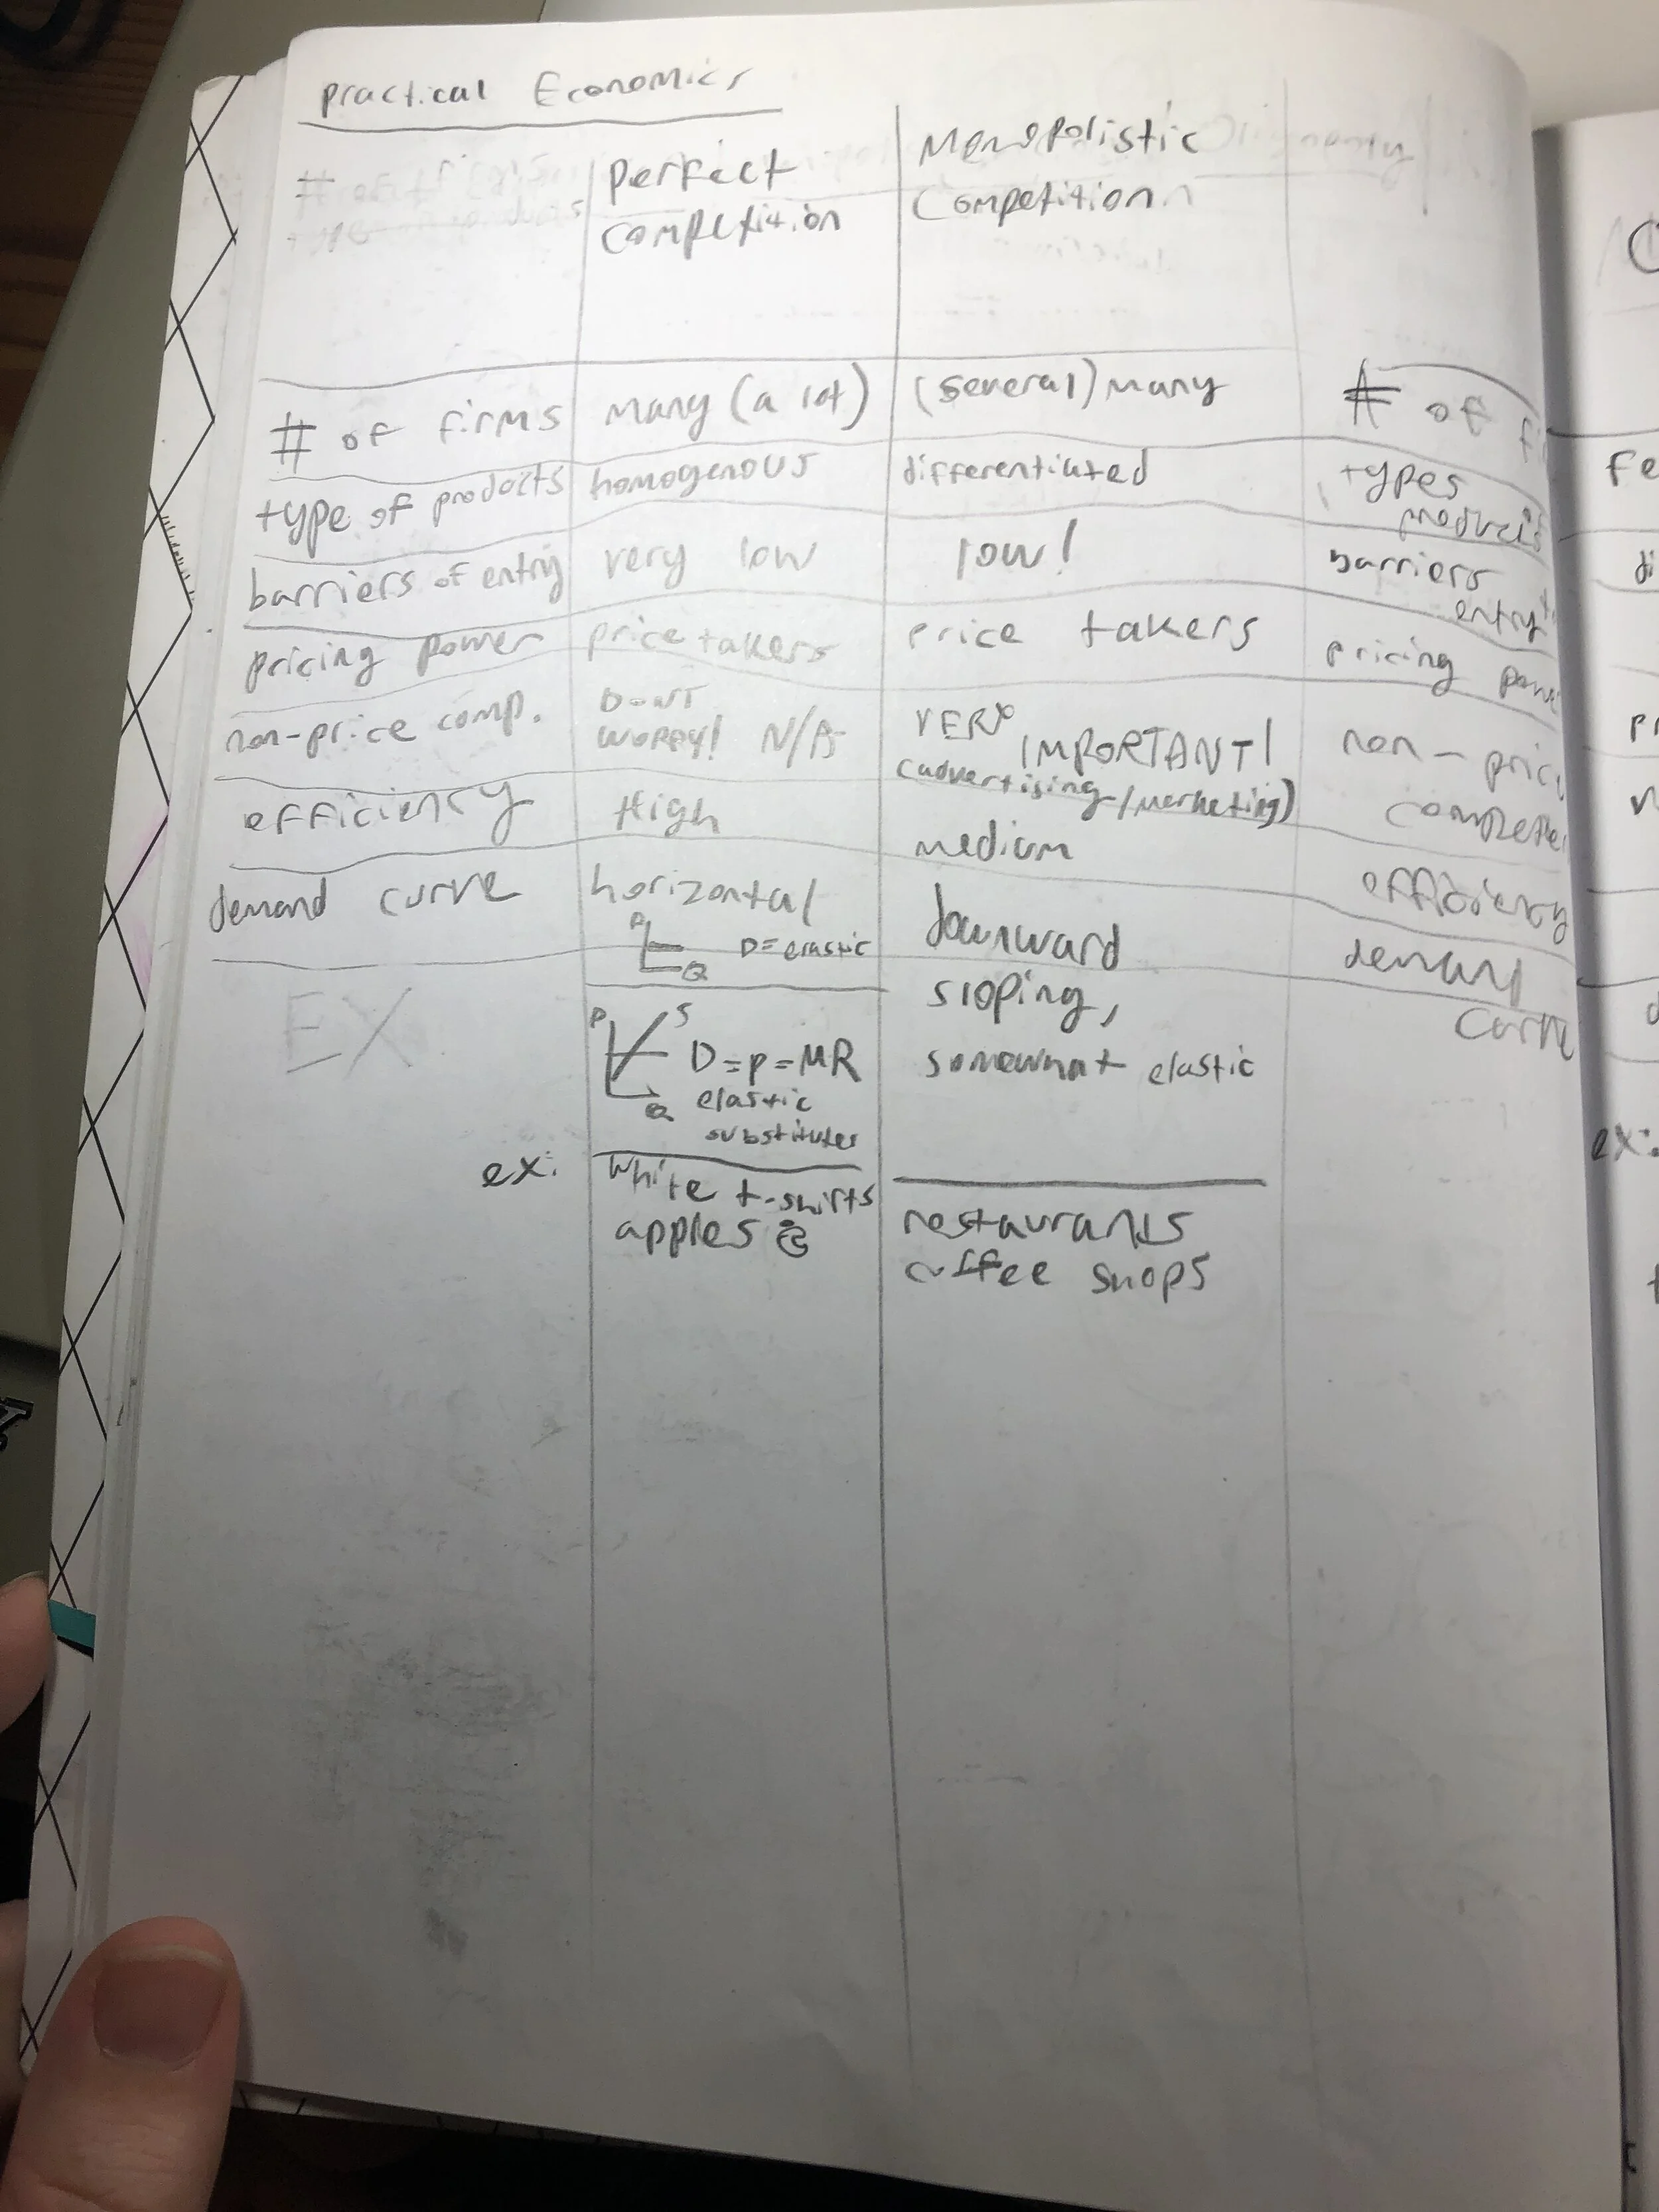 practical Economics
perfect
competition
Monopolistic
Competition
# of firms
many (a lot)
(several) many
# of
type of products
homogenous
differentiated
types
products
barriers of entry
very low
low!
barriers
entry
pricing power
price takers
price takers
pricing
non-price comp.
DONT
WORRY! N/A
VERY
IMPORTANT!
(advertising/marketing)
non-
efficiency
High
medium
efficiency
demand curve
horizontal
P
Q
D= elastic
downward
sloping,
somewhat elastic
demand
EX
P
S
D=p=MR
Q
elastic
substitutes
ex:
white t-shirts
apples
restaurants
coffee shops
ex: